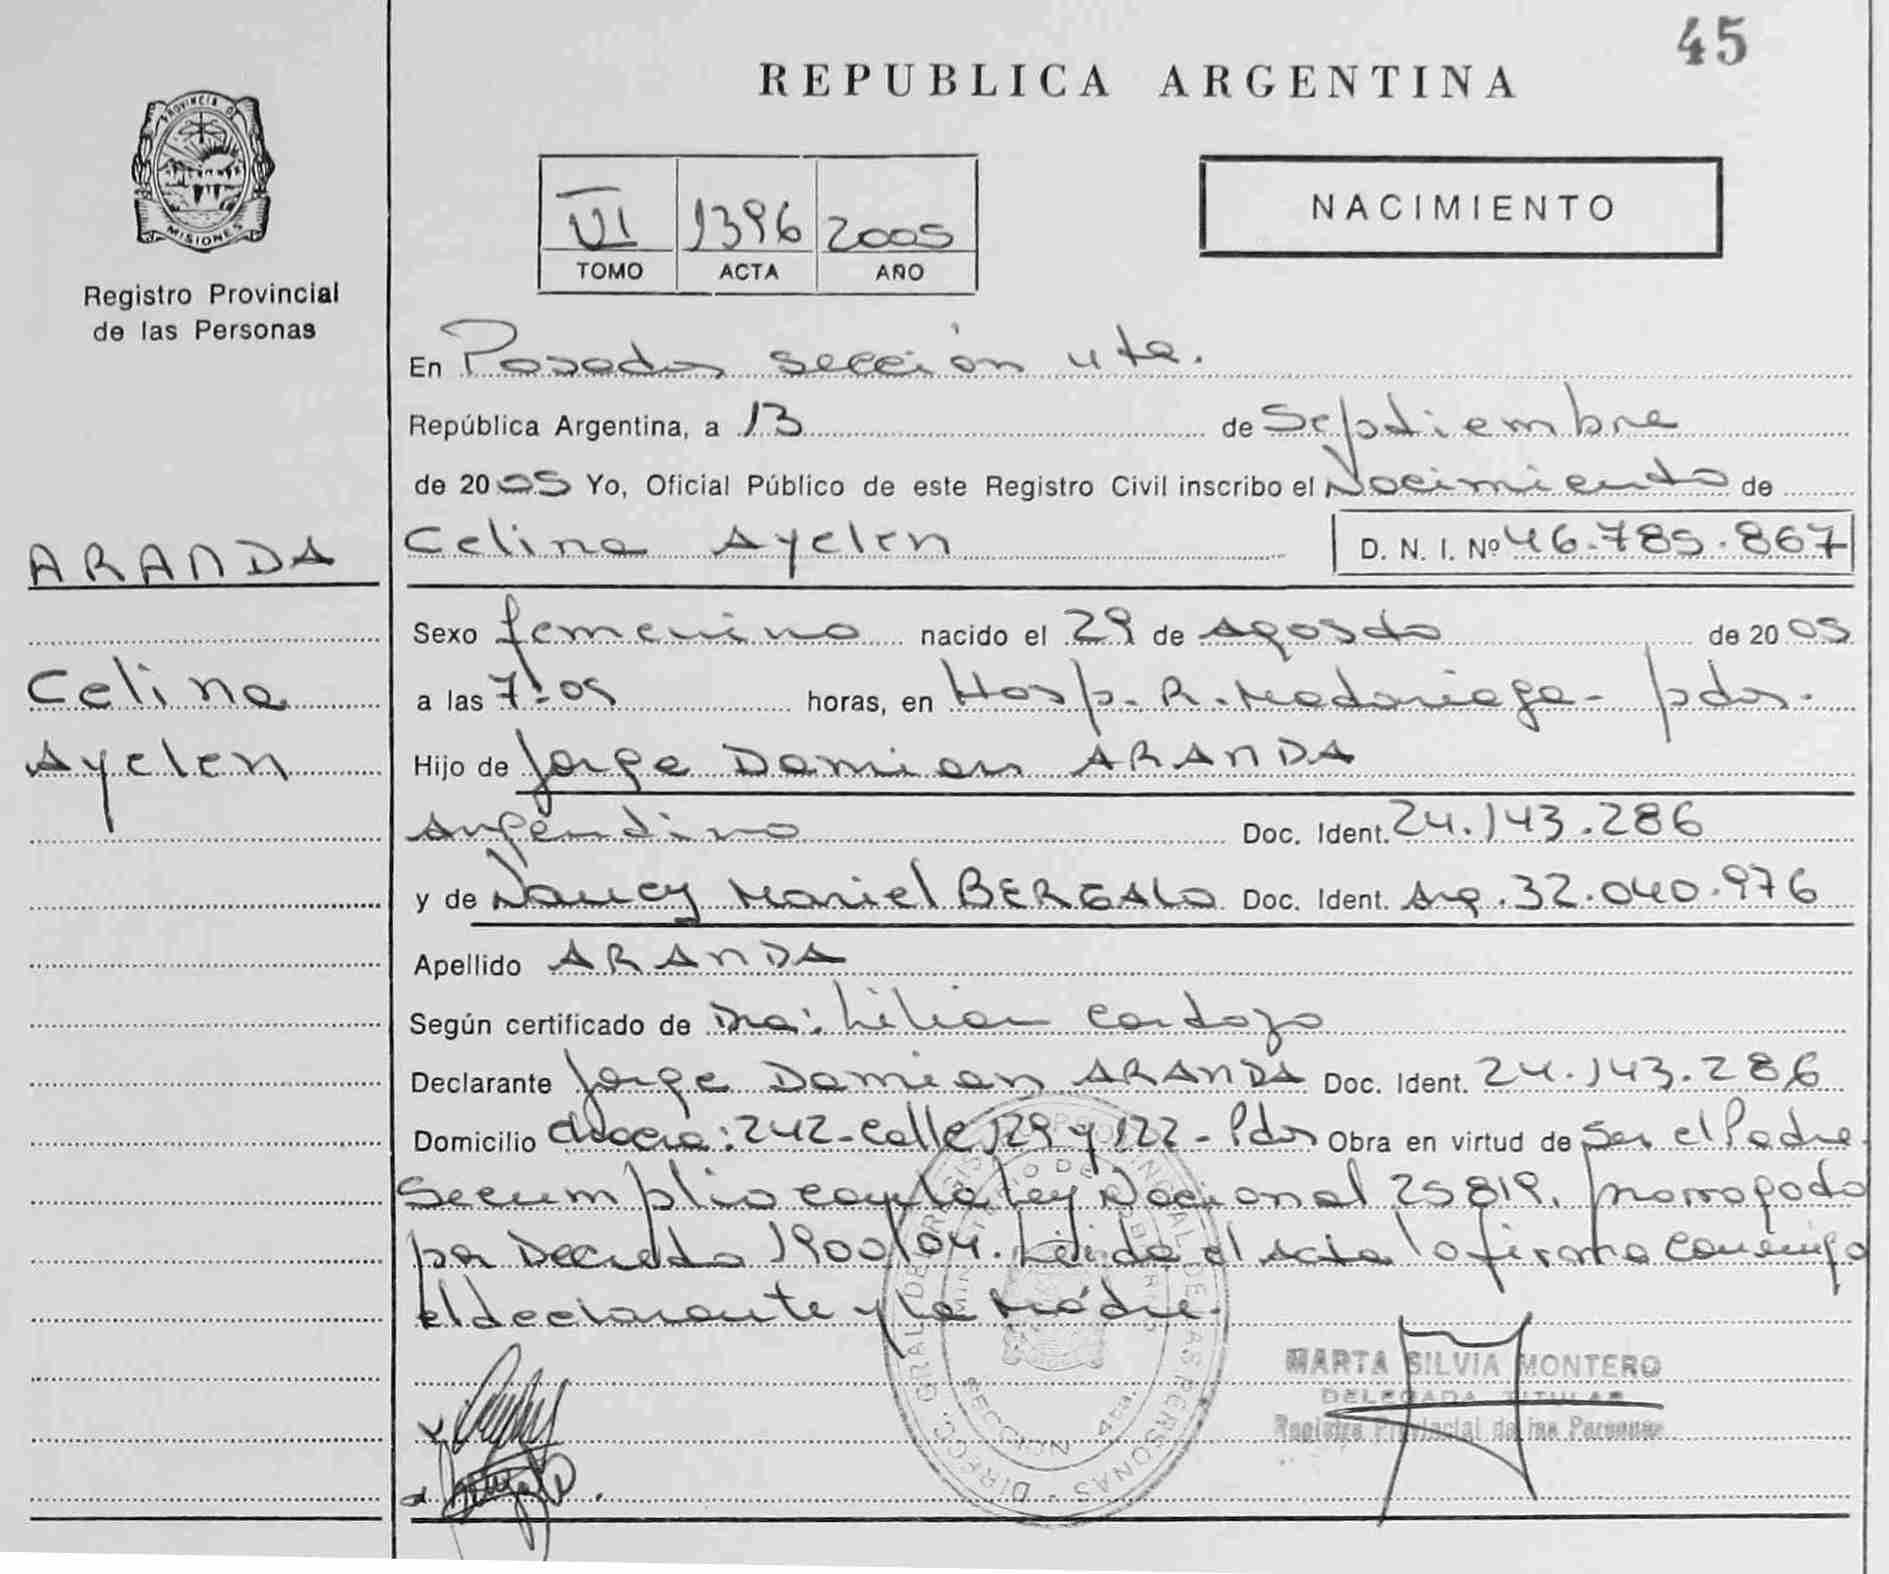 45
REPUBLICA ARGENTINA
PROVINCIA DE
MISIONES
Registro Provincial
de las Personas
VI 1396 2005
TOMO ACTA AÑO
NACIMIENTO
En Posadas sección 4ta.
República Argentina, a 13 de Septiembre
de 2005 Yo, Oficial Público de este Registro Civil inscribo el Nacimiento de
ARANDA
Celina Ayelen D. N. I. Nº 46.785.867
Sexo femenino nacido el 29 de Agosto de 2005
Celina
a las 7:05 horas, en Hosp. R. Madariaga - pdas.
Ayelen
Hijo de Jorge Damian ARANDA
Argentino Doc. Ident. 24.143.286
y de Nancy Mariel BERGALO Doc. Ident. Arg. 32.040.976
Apellido ARANDA
Según certificado de Dra: Lilian Cardozo
Declarante Jorge Damian ARANDA Doc. Ident. 24.143.286
Domicilio chacra: 242 - calle 129 y 122 - Pdas Obra en virtud de Ser el Padre.
Se cumplio con la Ley Nacional 25819, prorrogado
por Decreto 1900/04. Leida el acta la firma conmigo
el declarante y la Madre.
DIRECC. GRAL. DE REGISTRO PROVINCIAL DE LAS PERSONAS
MINISTERIO DE GOBIERNO
SECCION 4ta.
MARTA SILVIA MONTERO
DELEGADA TITULAR
Registro Provincial de las Personas